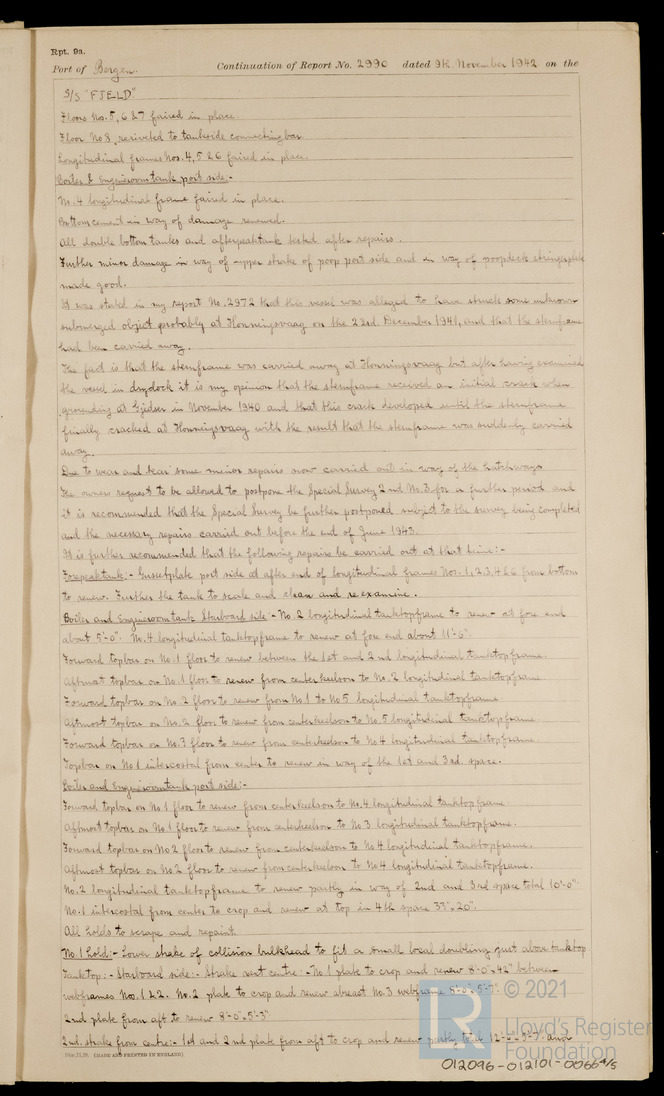 Rpt. 9a.
Port of Bergen. Continuation of Report No. 2990 dated 9th November 1942 on the
S/S "FJELD"
Floors Nos. 5, 6 & 7 faired in place.
Floor No 8, reriveted to tankside connecting bar.
Longitudinal frames Nos. 4, 5 & 6 faired in place.
Boiler & Engineroom tank port side:-
No. 4 longitudinal frame faired in place.
Bottom cement in way of damage renewed.
All double bottom tanks and afterpeaktank tested after repairs.
Further minor damage in way of upper strake of poop port side and in way of poopdeck stringerplate
made good.
It was stated in my report No. 2972 that this vessel was alleged to have struck some unknown
submerged object probably at Honningsvaag on the 22nd. December 1941, and that the sternframe
had been carried away.
The fact is that the sternframe was carried away at Honningsvaag but after having examined
the vessel in drydock it is my opinion that the sternframe received an initial crack when
grounding at Gjedser in November 1940 and that this crack developed until the sternframe
finally cracked at Honningsvaag with the result that the sternframe was suddenly carried
away.
Due to wear and tear some minor repairs now carried out in way of the hatchways
The owners request to be allowed to postpone the Special Survey 2nd No. 3 for a further period and
it is recommended that the Special Survey be further postponed subject to the survey being completed
and the necessary repairs carried out before the end of June 1943.
It is further recommended that the following repairs be carried out at that time:-
Forepeaktank:- Gussetplate port side at after end of longitudinal frames Nos. 1, 2, 3, 4 & 6 from bottom
to renew. Further the tank to scale and clean and re examine.
Boiler and Engineroom tank Starboard side:- No. 2 longitudinal tanktopframe to renew at fore end
about 5'-0". No. 4 longitudinal tanktopframe to renew at fore end about 11'-6".
Forward topbar on No. 1 floor to renew between the 1st and 2nd longitudinal tanktopframe.
Aftmost topbar on No. 1 floor to renew from centerkeelson to No. 2 longitudinal tanktopframe.
Forward topbar on No. 2 floor to renew from No. 1 to No 5 longitudinal tanktopframe
Aftmost topbar on No. 2 floor to renew from centerkeelson to No. 5 longitudinal tanktopframe.
Forward topbar on No. 3 floor to renew from centerkeelson to No 4 longitudinal tanktopframe.
Topbar on No 1 intercostal from center to renew in way of the 1st and 3rd. space.
Boiler and Engineroomtank port side:-
Forward topbar on No. 1 floor to renew from centerkeelson to No. 4 longitudinal tanktop frame.
Aftmost topbar on No. 1 floor to renew from centerkeelson to No 3 longitudinal tanktopframe.
Forward topbar on No 2 floor to renew from centerkeelson to No 4 longitudinal tanktopframe.
Aftmost topbar on No 2 floor to renew from centerkeelson to No 4 longitudinal tanktopframe.
No. 2 longitudinal tanktopframe to renew partly in way of 2nd and 3rd space total 10'-0".
No. 1 intercostal from center to crop and renew at top in 4th space 33" x 20".
All holds to scrape and repaint.
No. 1 hold:- Lower strake of collision bulkhead to fit a small local doubling just above tanktop
Tanktop:- Starboard side:- Strake next centre:- No. 1 plate to crop and renew 8'-0" x 42" between
webframes Nos. 1 & 2. No. 2 plate to crop and renew abreast No. 3 webframe 8'-0" x 5'-7".
2nd plate from aft to renew 8'-0" x 5'-3"
2nd. strake from centre:- 1st and 2nd plate from aft to crop and renew partly total and
(MADE AND PRINTED IN ENGLAND)
© 2021
LR
Lloyd's Register
Foundation
012096-012101-0066 4/5